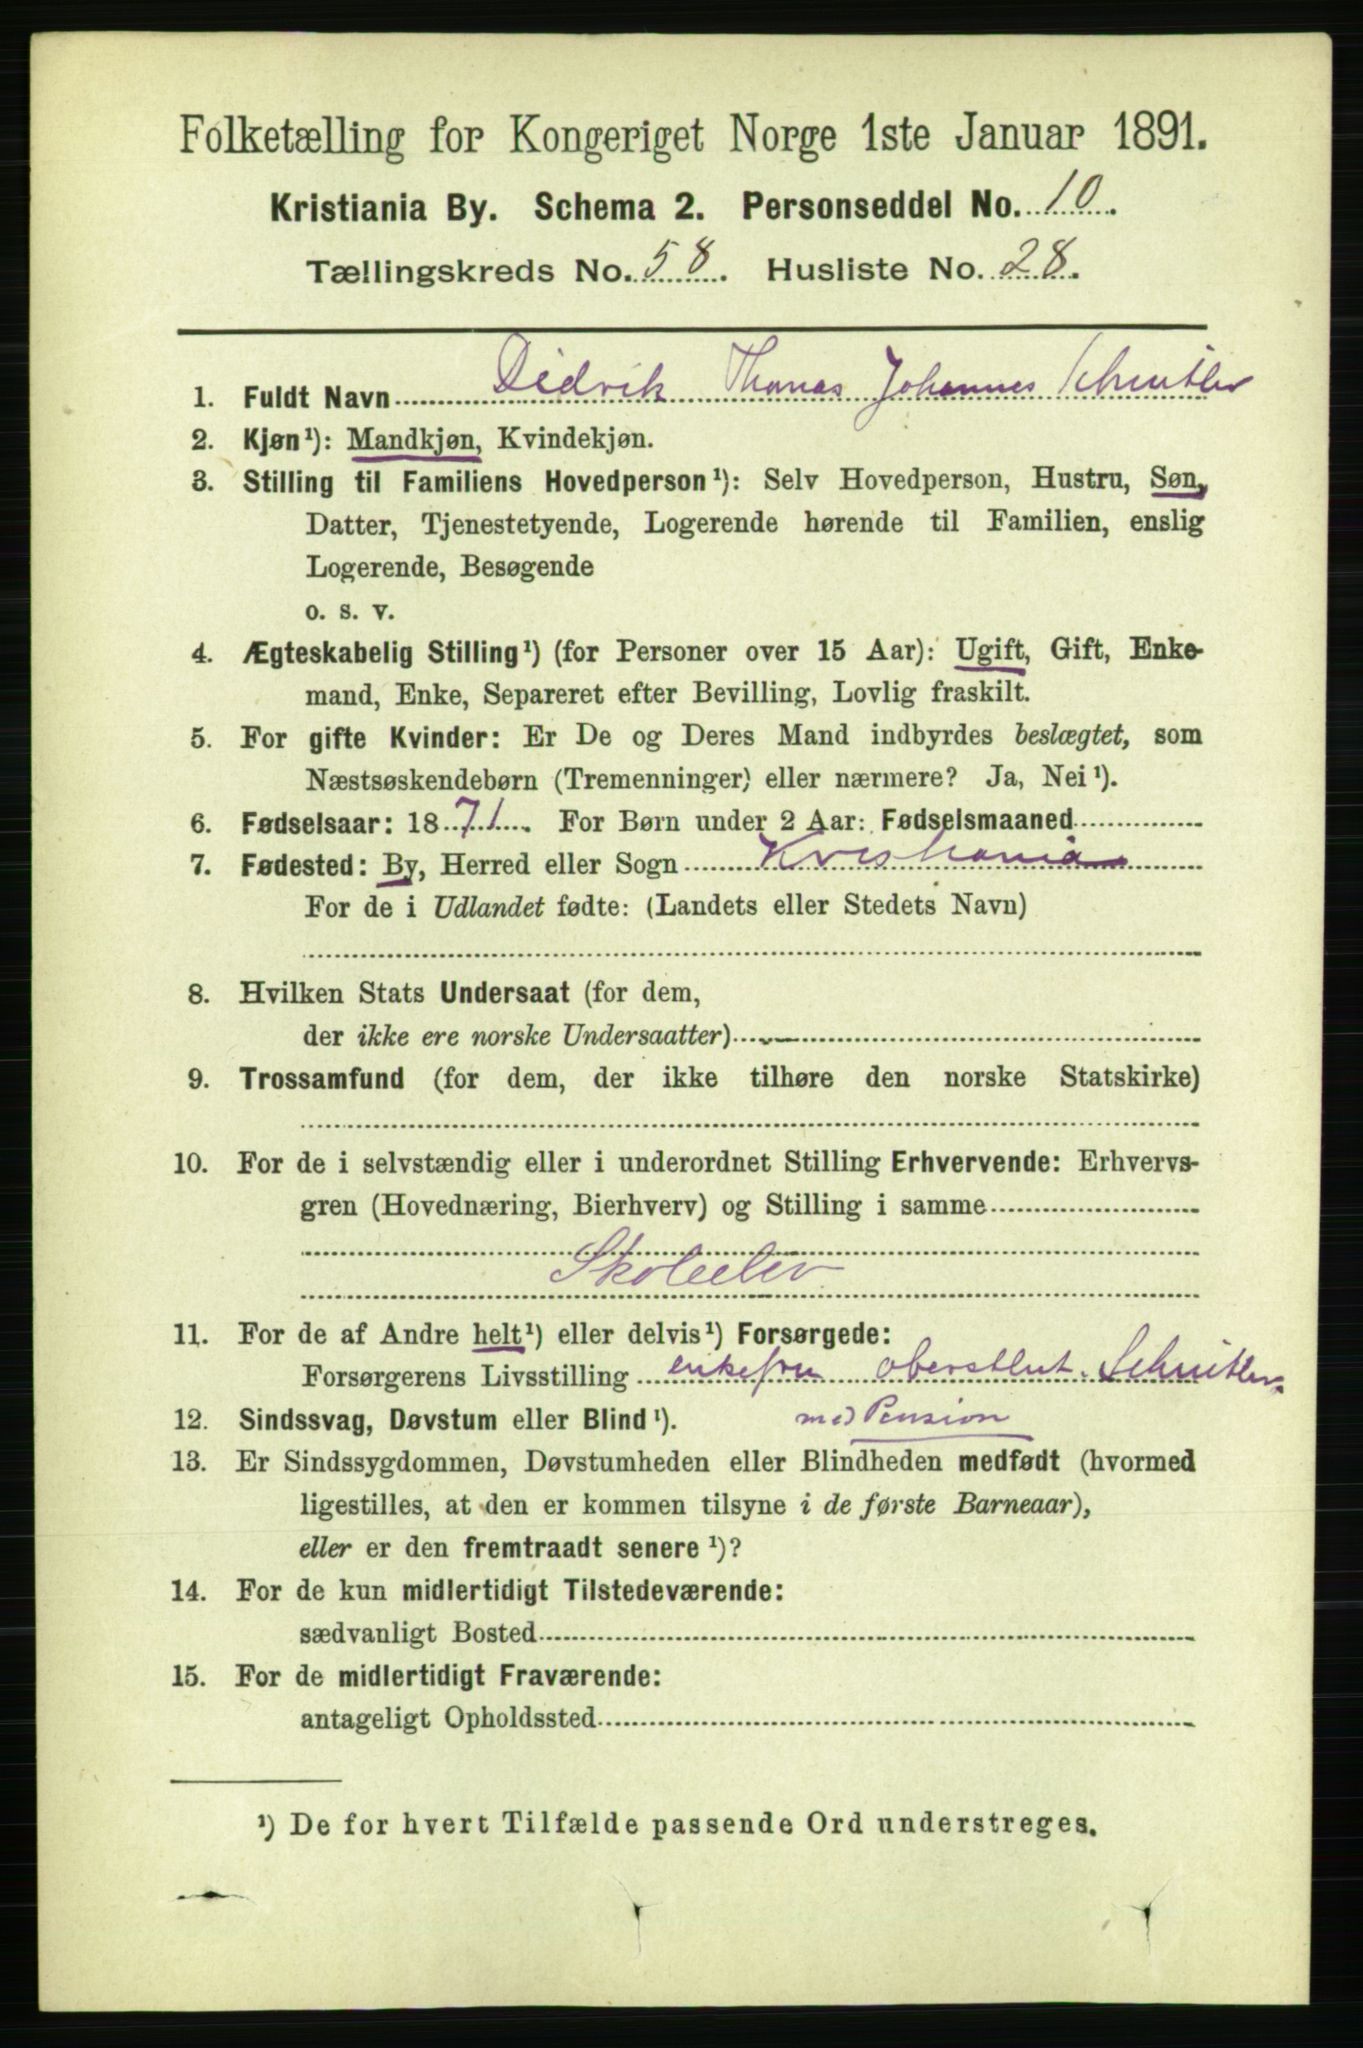 Folketælling for Kongeriget Norge 1ste Januar 1891.
Kristiania By. Schema 2. Personseddel No. 10.
Tællingskreds No. 58. Husliste No. 28.
1. Fuldt Navn Didrik Thomas Johannes Schnitler
2. Kjøn¹): Mandkjøn, Kvindekjøn.
3. Stilling til Familiens Hovedperson¹): Selv Hovedperson, Hustru, Søn,
Datter, Tjenestetyende, Logerende hørende til Familien, enslig
Logerende, Besøgende
o. s. v.
4. Ægteskabelig Stilling¹) (for Personer over 15 Aar): Ugift, Gift, Enke-
mand, Enke, Separeret efter Bevilling, Lovlig fraskilt.
5. For gifte Kvinder: Er De og Deres Mand indbyrdes beslægtet, som
Næstsøskendebørn (Tremenninger) eller nærmere? Ja, Nei¹).
6. Fødselsaar: 1871. For Børn under 2 Aar: Fødselsmaaned
7. Fødested: By, Herred eller Sogn Kristiania
For de i Udlandet fødte: (Landets eller Stedets Navn)
8. Hvilken Stats Undersaat (for dem,
der ikke ere norske Undersaatter)
9. Trossamfund (for dem, der ikke tilhøre den norske Statskirke)
10. For de i selvstændig eller i underordnet Stilling Erhvervende: Erhvervs-
gren (Hovednæring, Bierhverv) og Stilling i samme
Skoleelev
11. For de af Andre helt¹) eller delvis¹) Forsørgede:
Forsørgerens Livsstilling enkefru oberstlut. Schnitler
12. Sindssvag, Døvstum eller Blind¹). med Pension
13. Er Sindssygdommen, Døvstumheden eller Blindheden medfødt (hvormed
ligestilles, at den er kommen tilsyne i de første Barneaar),
eller er den fremtraadt senere¹)?
14. For de kun midlertidigt Tilstedeværende:
sædvanligt Bosted
15. For de midlertidigt Fraværende:
antageligt Opholdssted
¹) De for hvert Tilfælde passende Ord understreges.